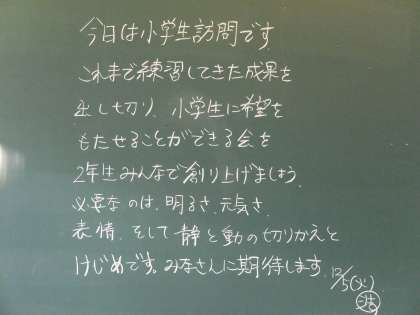 今日は小学生訪問です
これまで練習してきた成果を
出し切り、小学生に希望を
もたせることができる会を
2年生みんなで創り上げましょう
必要なのは、明るさ、元気さ、
表情、そして静と動の切りかえと
けじめです。みなさんに期待します。12/5(火)